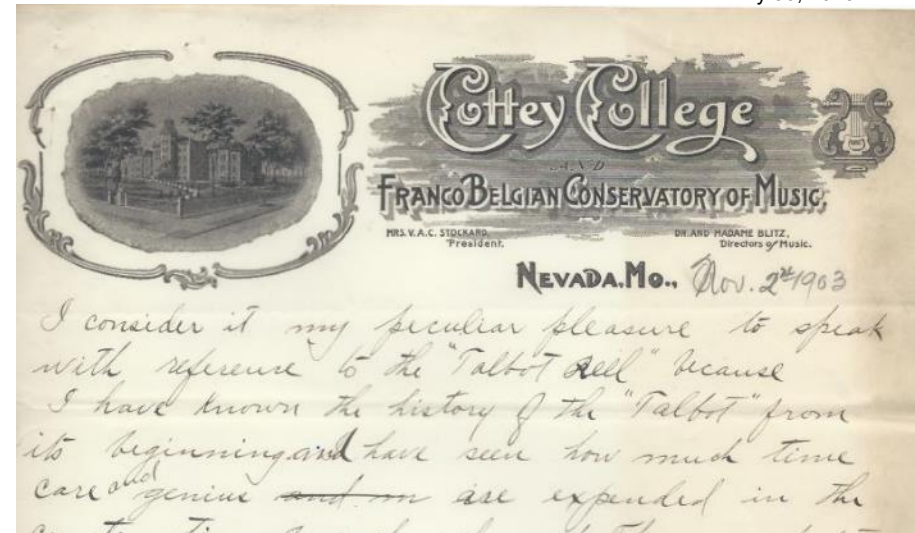 Cottey College
AND
FRANCO BELGIAN CONSERVATORY OF MUSIC,
MRS. V. A. C. STOCKARD, President.
DR. AND MADAME BLITZ, Directors of Music.
NEVADA, MO., Nov. 2nd 1903
I consider it my peculiar pleasure to speak
with reference to the "Talbot Reed" because
I have known the history of the "Talbot" from
its beginning and have seen how much time
care and genius and in are expended in the